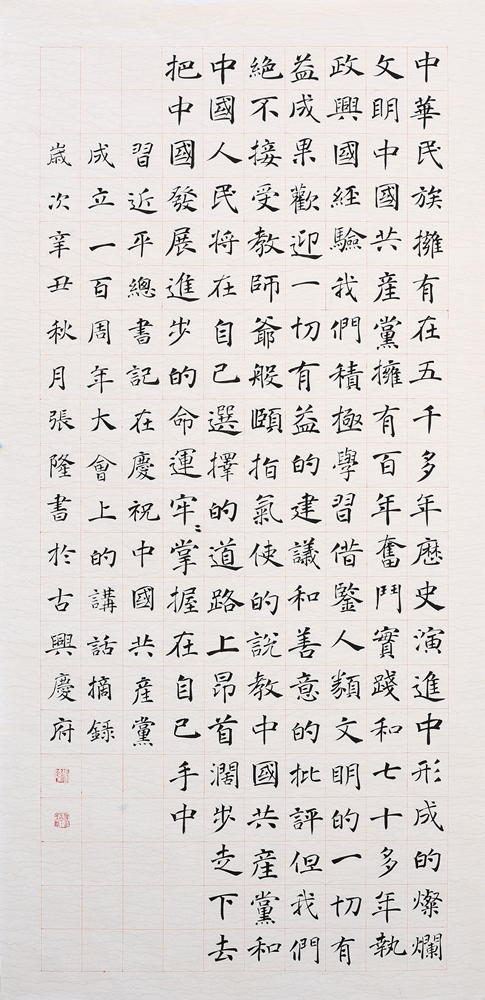 中華民族擁有在五千多年歷史演進中形成的燦爛
文明中國共産黨擁有百年奮鬥實踐和七十多年執
政興國經驗我們積極學習借鑒人類文明的一切有
益成果歡迎一切有益的建議和善意的批評但我們
絕不接受教師爺般頤指氣使的說教中國共産黨和
中國人民將在自己選擇的道路上昂首濶步走下去
把中國發展進步的命運牢〻掌握在自己手中
習近平總書記在慶祝中國共産黨
成立一百周年大會上的講話摘錄
歲次辛丑秋月張隆書於古興慶府